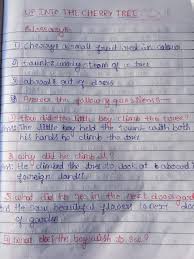 UP INTO THE CHERRY TREE
Glossary:-
1) Cherry: a small fruit red in colour
2) trunk: main stem of a tree
3) abroad: out of doors
Q) Answer the following questions-
1) How did the little boy climb the tree?
Ans: The little boy held the trunk with both
his hands to climb the tree
2) Why did he climb it?
Ans: He climbed the tree to look at abroad
foreign lands.
3) What did he see in the next door garden
Ans: He saw beautiful flowers in next door
garden
4) What does the boy wish to see?